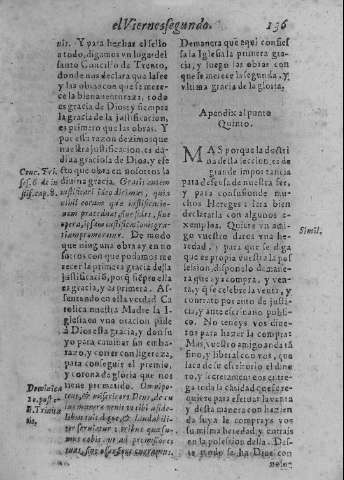 el Viernes segundo. 136
nir. Y para hechar el sello
a todo, digamos vn lugar del
santo Concilio de Trento,
donde nos declara que la fee
y las obras con que se mere-
ce la bienauenturaza, todo
es gracia de Dios: y siempre
la gracia de la justificacion,
es primero que las obras. Y
por essa razon dezimos que
nuestra justificacion, es da-
diua graciosa de Dios, y esto
que obra en nosotros la
diuina gracia. Gratis autem
iustificari ideo dicimur, quia
nihil eorum quæ iustificatio-
nem præcedunt, siue fides, siue
opera, ipsam iustificationis gra-
tiam promeretur. De modo
que ninguna obra ay en no
sotros con que podamos me
recer la primera gracia de la
justificacio, porq siepre ella
es gracia, y es primera. As-
sentando en esta verdad Ca
tolica nuestra Madre la I-
glesia en vna oracion pide
à Dios esta gracia, y don su
yo para caminar sin emba-
razo, y correr con ligereza,
para conseguir el premio,
y corona de gloria que nos
tiene prometido. Omnipo-
tens, & misericors Deus, de cu
ius munere venit vt tibi à fide-
libus tuis digne, & laudabili-
ter seruiatur: tribue quæsu-
mus nobis, vt ad promissiones
tuas, sine offensione curramus.
Conc. Tri.
ses. 6. de iu
stif. cap. 8.
Dominica
12. post
S. Trinita
tis.
De manera que aqui confies-
sa la Iglesia la primera gra-
cia, y luego las obras con
que se merece la segunda, y
vltima gracia de la gloria.
Apendix al punto
Quinto.
MAS porque la doctri
na desta leccion, es de
grande importancia
para defensa de nuestra fee,
y para confusion de mu-
chos Hereges: serà bien
declararla con algunos e-
xemplos. Quiere vn ami-
go vuestro daros vna he-
redad, y para que se diga
que es propia vuestra la pos
session, disponelo de mane-
ra que aya compra, y ven-
ta, y que se celebre la venta, y
contrato por ante de justi-
cia, y ante escriuano publi-
co. No teneys vos dine-
ros para hazer la compra:
Mas, vuestro amigo anda tã
fino, y liberal con vos, que
los saca de su escritorio el dine
ro, y secretamente os entre-
ga toda la catidad que se re-
quiere para efectuar la venta
y desta manera con hazien-
da suya le comprays vos
su misma heredad, y entrais
en la possession della. Des-
te modo se ha Dios con
Simil.